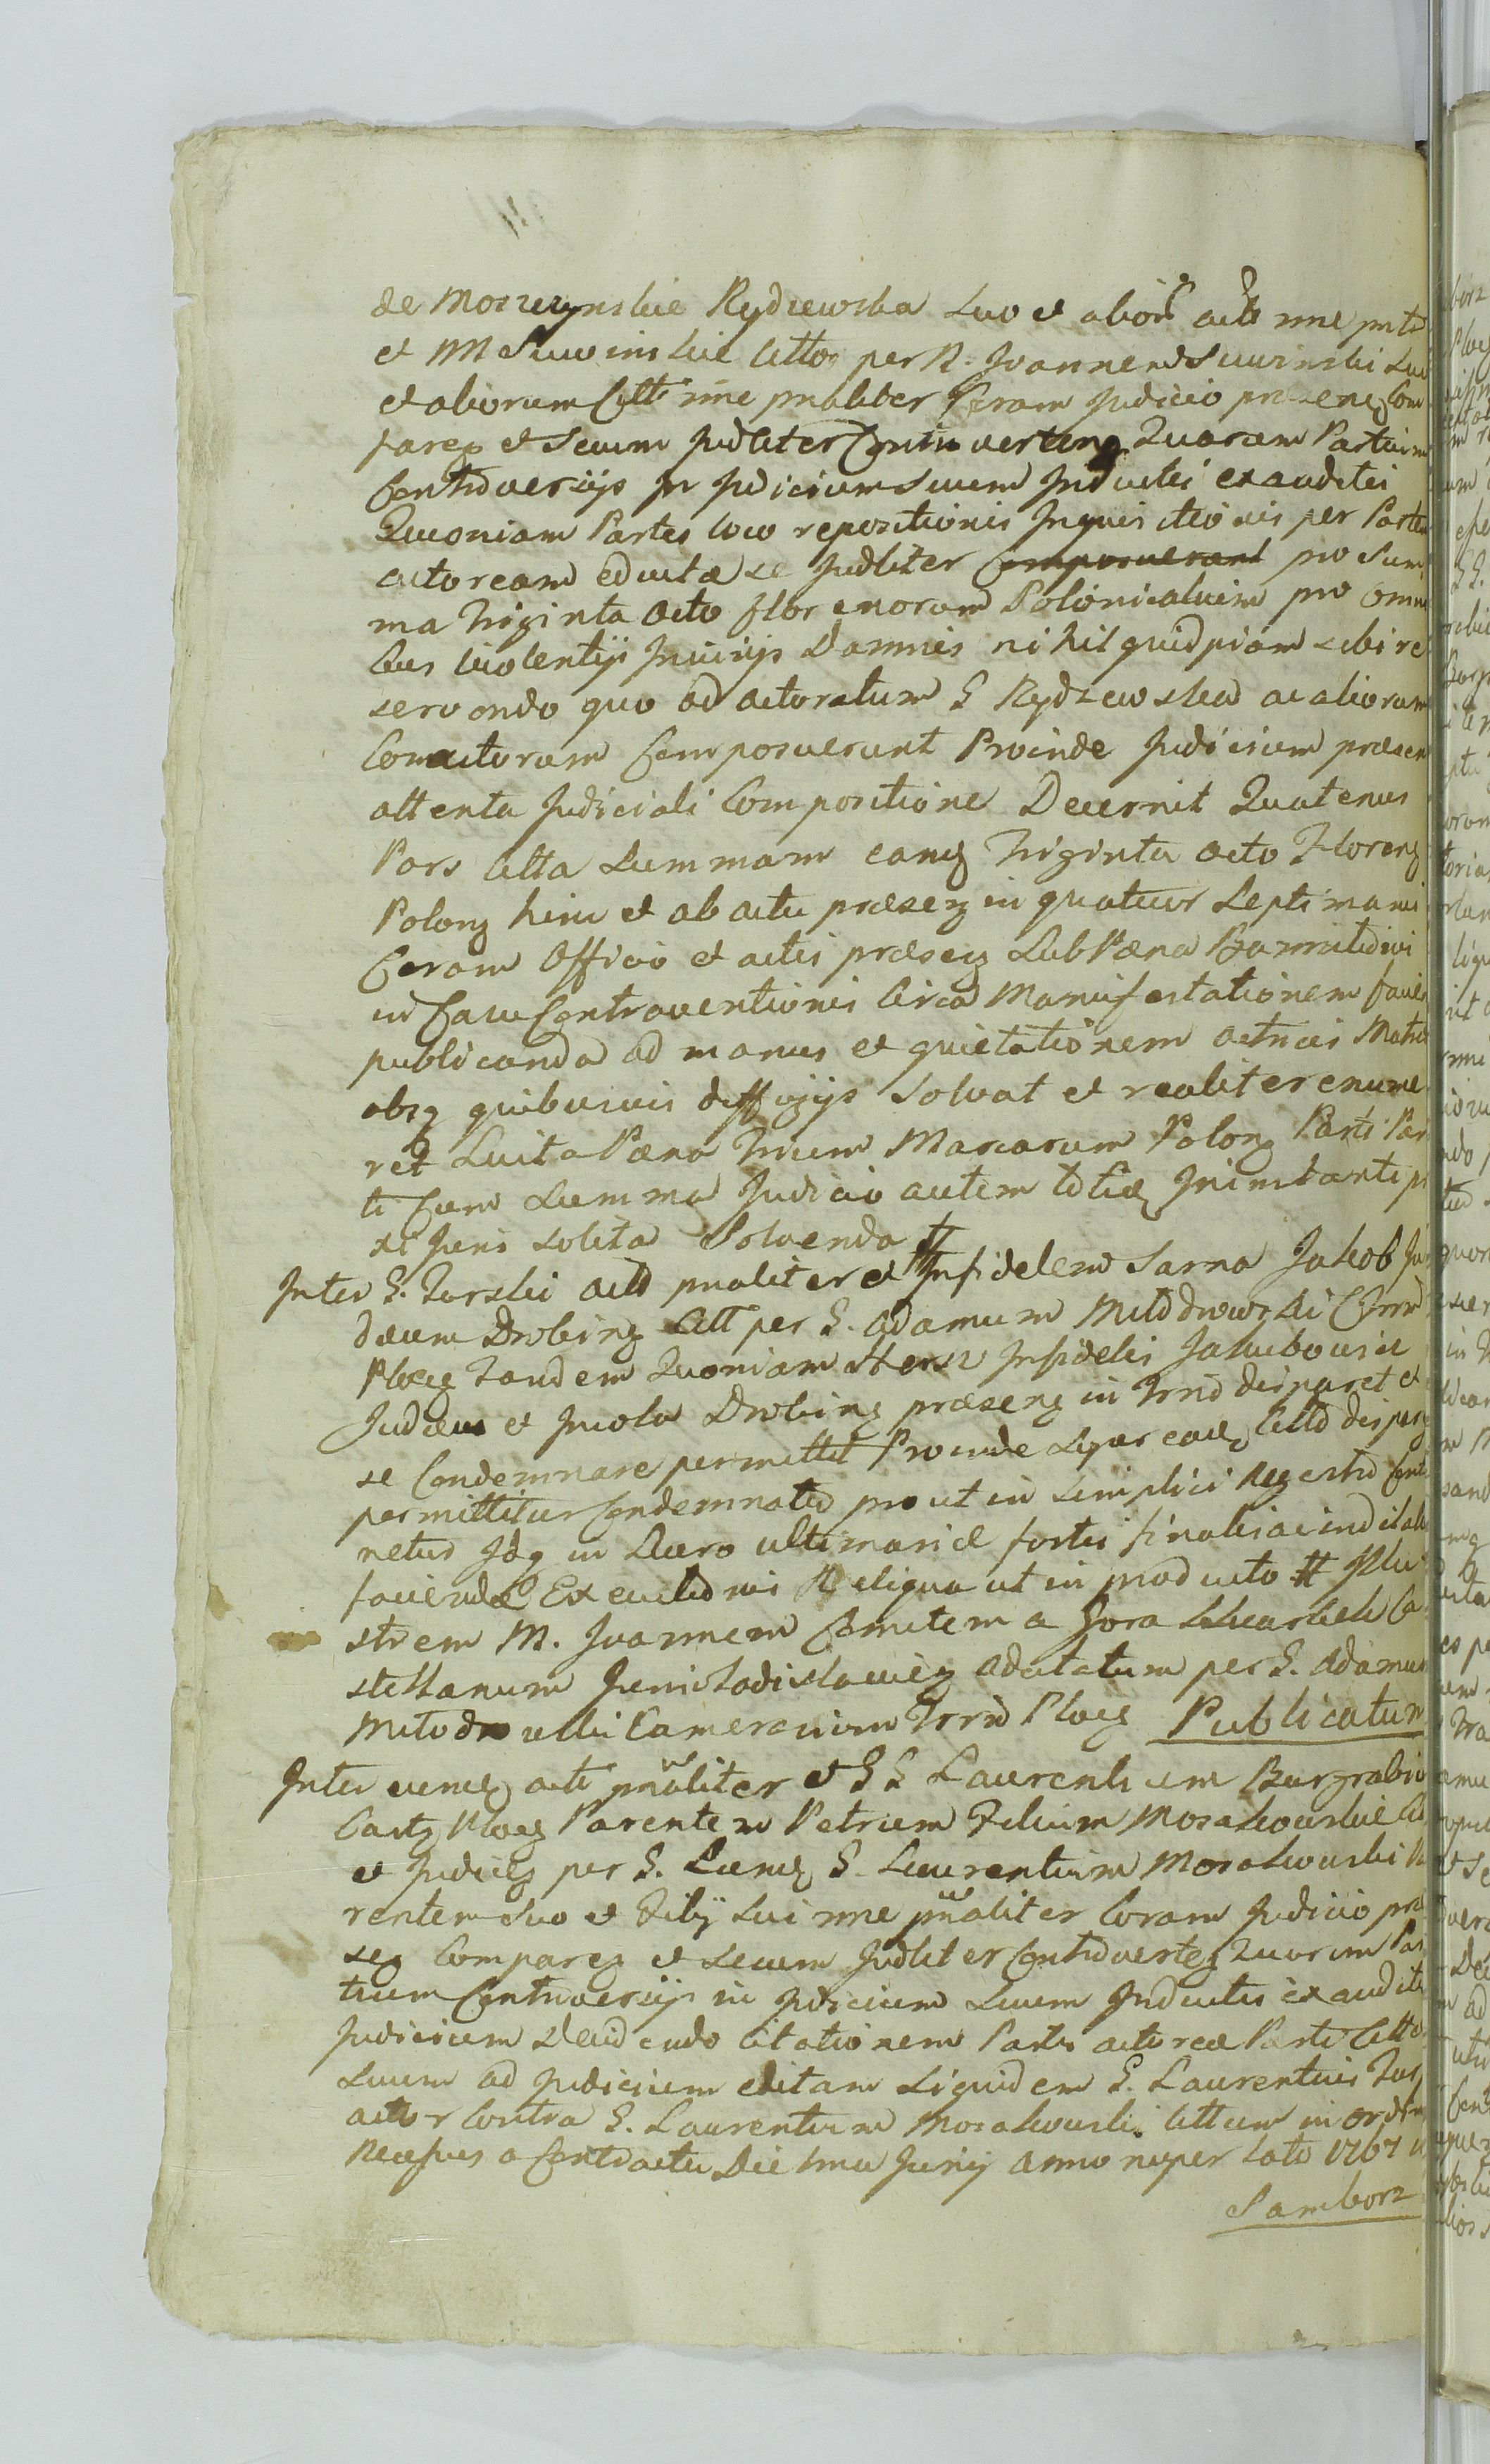 de Moszczynskie Rydzewska suo et alior actor nne pntr
et M Suwinskie Cittos per N. Joannem Suwinski Suo
et aliorum Citt nne pnaliter Coram Judicio praesenq Com
pareq et Secum Judliter Controverteng Quorum Partium
Controversijs In Judicium Suum Inductis exauditis
Quoniam Partes loco repositionis Inquisitionis per Partem
actoream eductae se Judliter Composuerant pro Sum
ma Triginta octo florenorum Polonicalium pro omni
bus violentijs Injurijs Damnis nihil quidpiam sibi re
servando quo ad actoratum G Rydzewska ac aliorum
Comactorum Composuerunt Proinde Judicium praesen
attenta Judiciali Compositione Decernit Quatenus
Pars Citta Summam eanq Triginta octo Florenq
Polonq hinc et ab actu praesenq in quatuor Septimanis
Coram Officio et actis praesenq Sub Paena Bannitionis
in Casu Contraventionis Circa Manifestationem facie
publicanda ad manus et quietationem actricis Matris
absq quibusvis diffugijs Solvat et realiter enume
ret Luita Paena Trium Marcarum Polonq Parti Par
ti Cum Summa Judicio autem totiq Ininstanti pr
xi Juris solita Solvenda #
Inter G. Turski act pnaliter et Infidelem Sarna Jakob Ju
daeum Drobinq Citt per G. Adamum Milodrowski Cmr
Plocq Tandem Quoniam Hersz Infidelis Jakubowicz
Judaeus et Incola Drobinq praesenq in Trnō disparet et
se Condemnare permittit Proinde Super eunq Cittd disparq
permittitur Condemnatio prout in simplici Regestro Conti
netur Idq in Lucro ultimariae fortis finalis ac inditabi
faciendae Executionis Reliqua ut in producto # Illu
strem M. Joannem Comitem a Gora Skarbek Ca
stellanum Junivladislawieq adcitatum per G. Adamum
Milodrowski Camerarium Trrō Plocq Publicatum
Inter eunq act pnaliter et GG Laurentium Burgrabiu
Castq Plocq Parentem Petrum Filium Mosakowskie Ci
et Judicq per G. Eunq G. Laurentium Mosakowski Pa
rentem Suo et Filij Sui nne pnaliter Coram Judicio prae
seq Compareq et Secum Judliter Controverteq Quorum Par
tium Controversijs in Judicium Suum Inductis exauditis
Judicium Decidendo Citationem Partis actoreae Parti Citta
Suum ad Judicium editam Siquidem G. Laurentius Turs
actor Contra G. Laurentium Mosakowski Cittum in ordin
Recessus a Contractu Die 1ma Junij Anno nuper lato 1767 in
Samborz